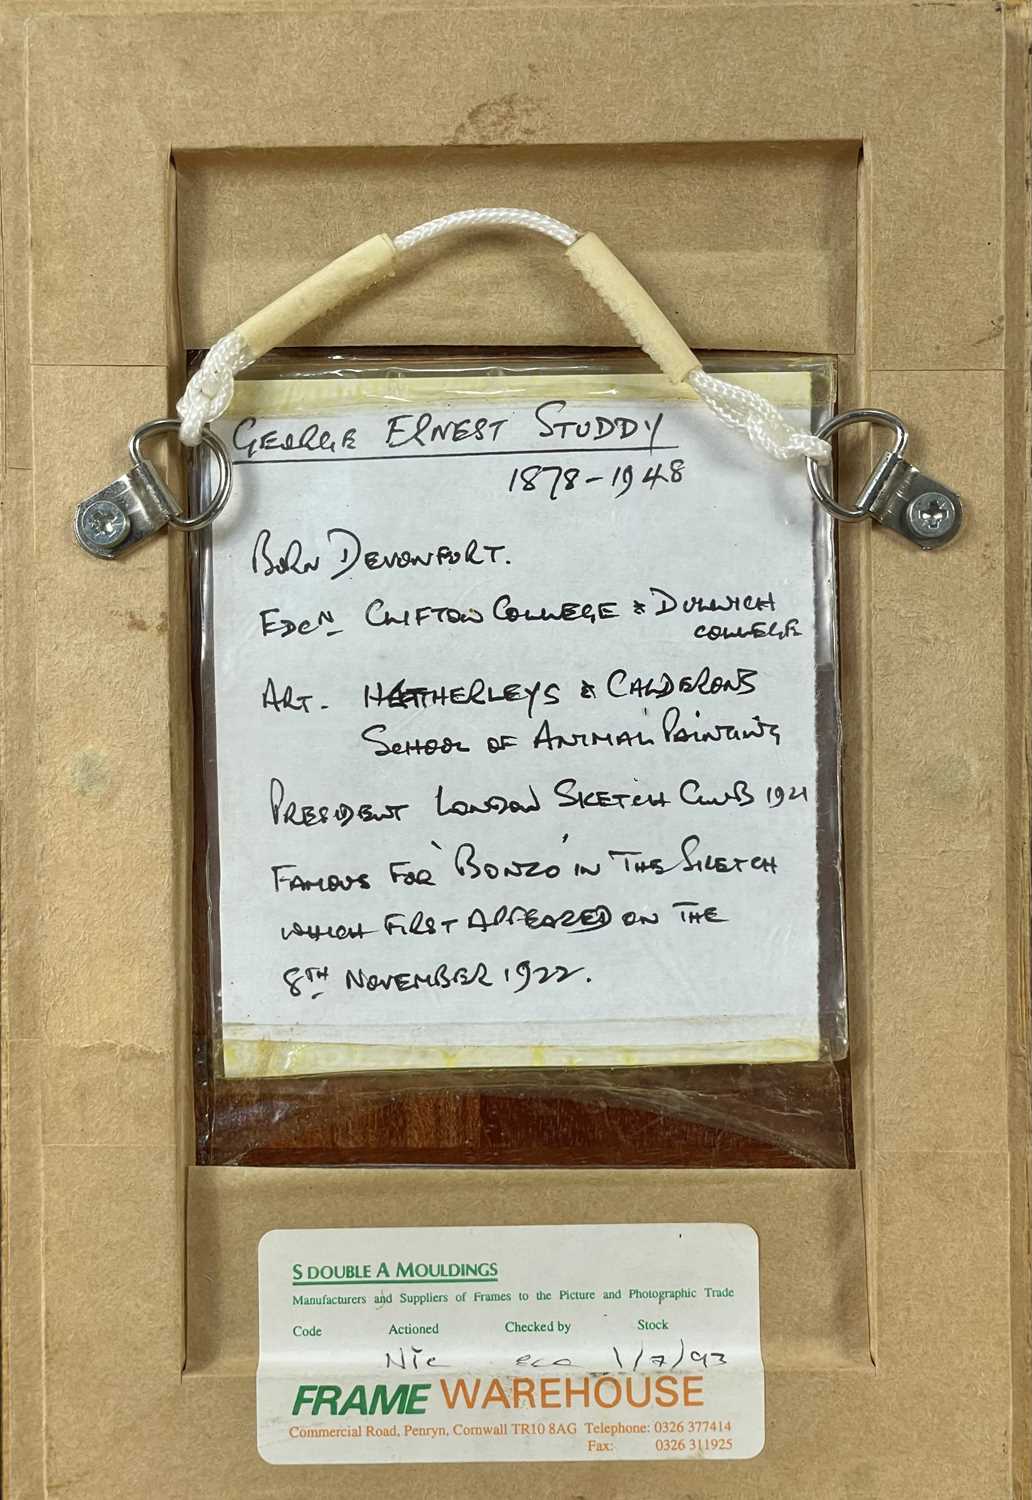 GEORGE ERNEST STUDDY
1878-1948
BORN DEVONPORT.
EDCN CLIFTON COLLEGE & DULWICH
COLLEGE
ART. HEATHERLEYS & CALDERONS
SCHOOL OF ANIMAL PAINTING
PRESIDENT LONDON SKETCH CLUB 1921
FAMOUS FOR 'BONZO' IN THE SKETCH
WHICH FIRST APPEARED ON THE
8TH NOVEMBER 1922.
S DOUBLE A MOULDINGS
Manufacturers and Suppliers of Frames to the Picture and Photographic Trade
Code Actioned Checked by Stock
1/7/93
FRAME WAREHOUSE
Commercial Road, Penryn, Cornwall TR10 8AG Telephone: 0326 377414
Fax: 0326 311925